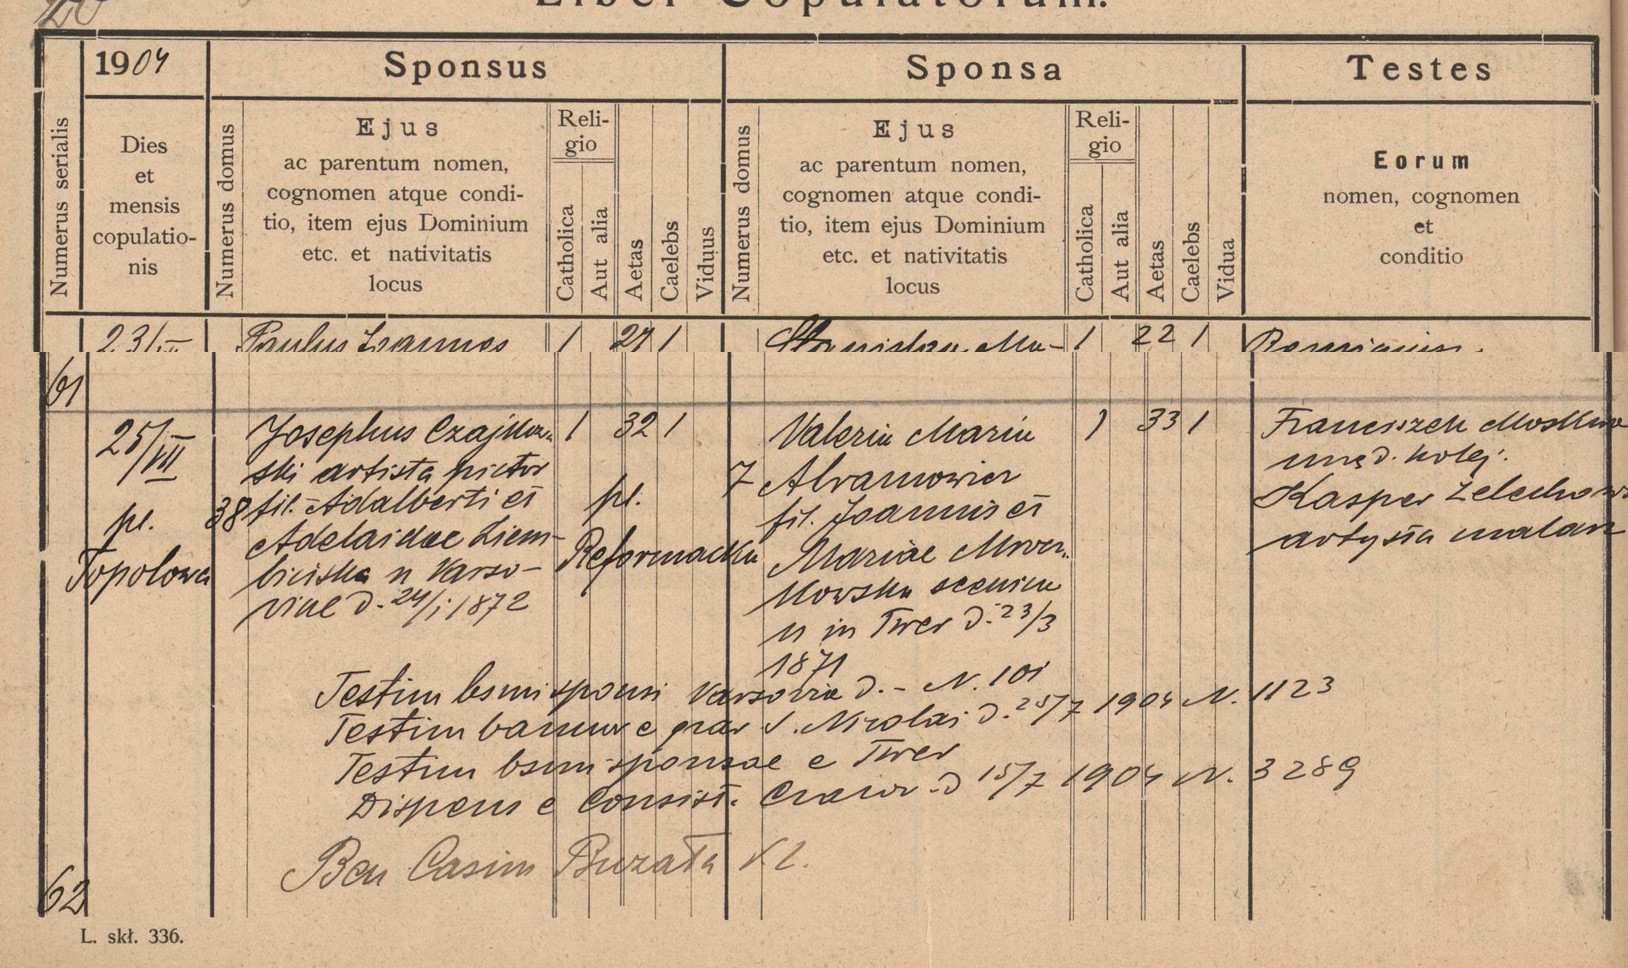 Liber Copulatorum.
1904
Sponsus
Sponsa
Testes
Numerus serialis
Dies
et
mensis
copulatio-
nis
Numerus domus
Ejus
ac parentum nomen,
cognomen atque condi-
tio, item ejus Dominium
etc. et nativitatis
locus
Reli-
gio
Catholica
Aut alia
Aetas
Caelebs
Viduus
Numerus domus
Ejus
ac parentum nomen,
cognomen atque condi-
tio, item ejus Dominium
etc. et nativitatis
locus
Reli-
gio
Catholica
Aut alia
Aetas
Caelebs
Vidua
Eorum
nomen, cognomen
et
conditio
Paulus Joannes 1 1
1 22 1
61
25/VII
pl.
Topolowa
38
Josephus Czajkow-
ski artista pictor
fil. Adalberti et
Adelaidae Ziem-
bicińska n Varso-
viae d. 24/1 1872
1 32 1
pl.
Reformacka
7
Valeria Maria
Abramowicz
fil. Joannis et
Mariae
scenica
n in Twer d. 23/3
1871
1 33 1
Franciszek
urzęd. kolej.
Kasper Żelechows
artysta malarz
Testim bsmi sponsi Varsovia d. - N. 101
Testim bannor e par S. Nicolai d. 25/7 1904 N. 1123
Testim bsmi sponsae e Twer
Dispens e Consist. Cracov. d 15/7 1904 N. 3289
Ben Casim Buzała
62
L. skł. 336.